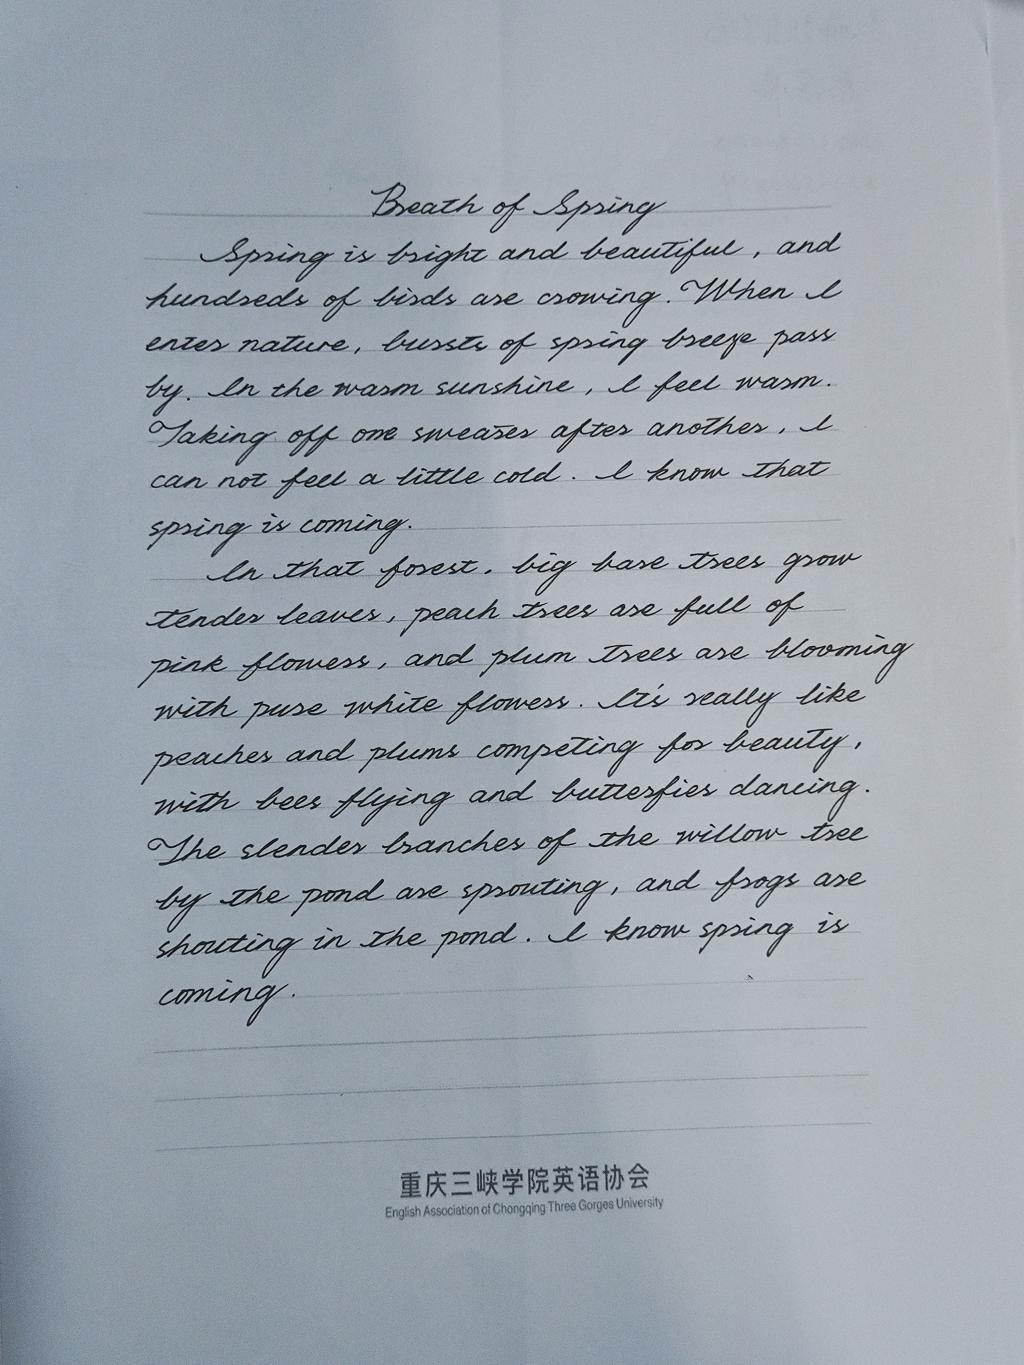 Breath of Spring
Spring is bright and beautiful, and
hundreds of birds are crowing. When I
enter nature, bursts of spring breeze pass
by. In the warm sunshine, I feel warm.
Taking off one sweater after another, I
can not feel a little cold. I know that
spring is coming.
In that forest, big bare trees grow
tender leaves, peach trees are full of
pink flowers, and plum trees are blooming
with pure white flowers. It's really like
peaches and plums competing for beauty,
with bees flying and butterfies dancing.
The slender branches of the willow tree
by the pond are sprouting, and frogs are
shouting in the pond. I know spring is
coming.
重庆三峡学院英语协会
English Association of Chongqing Three Gorges University